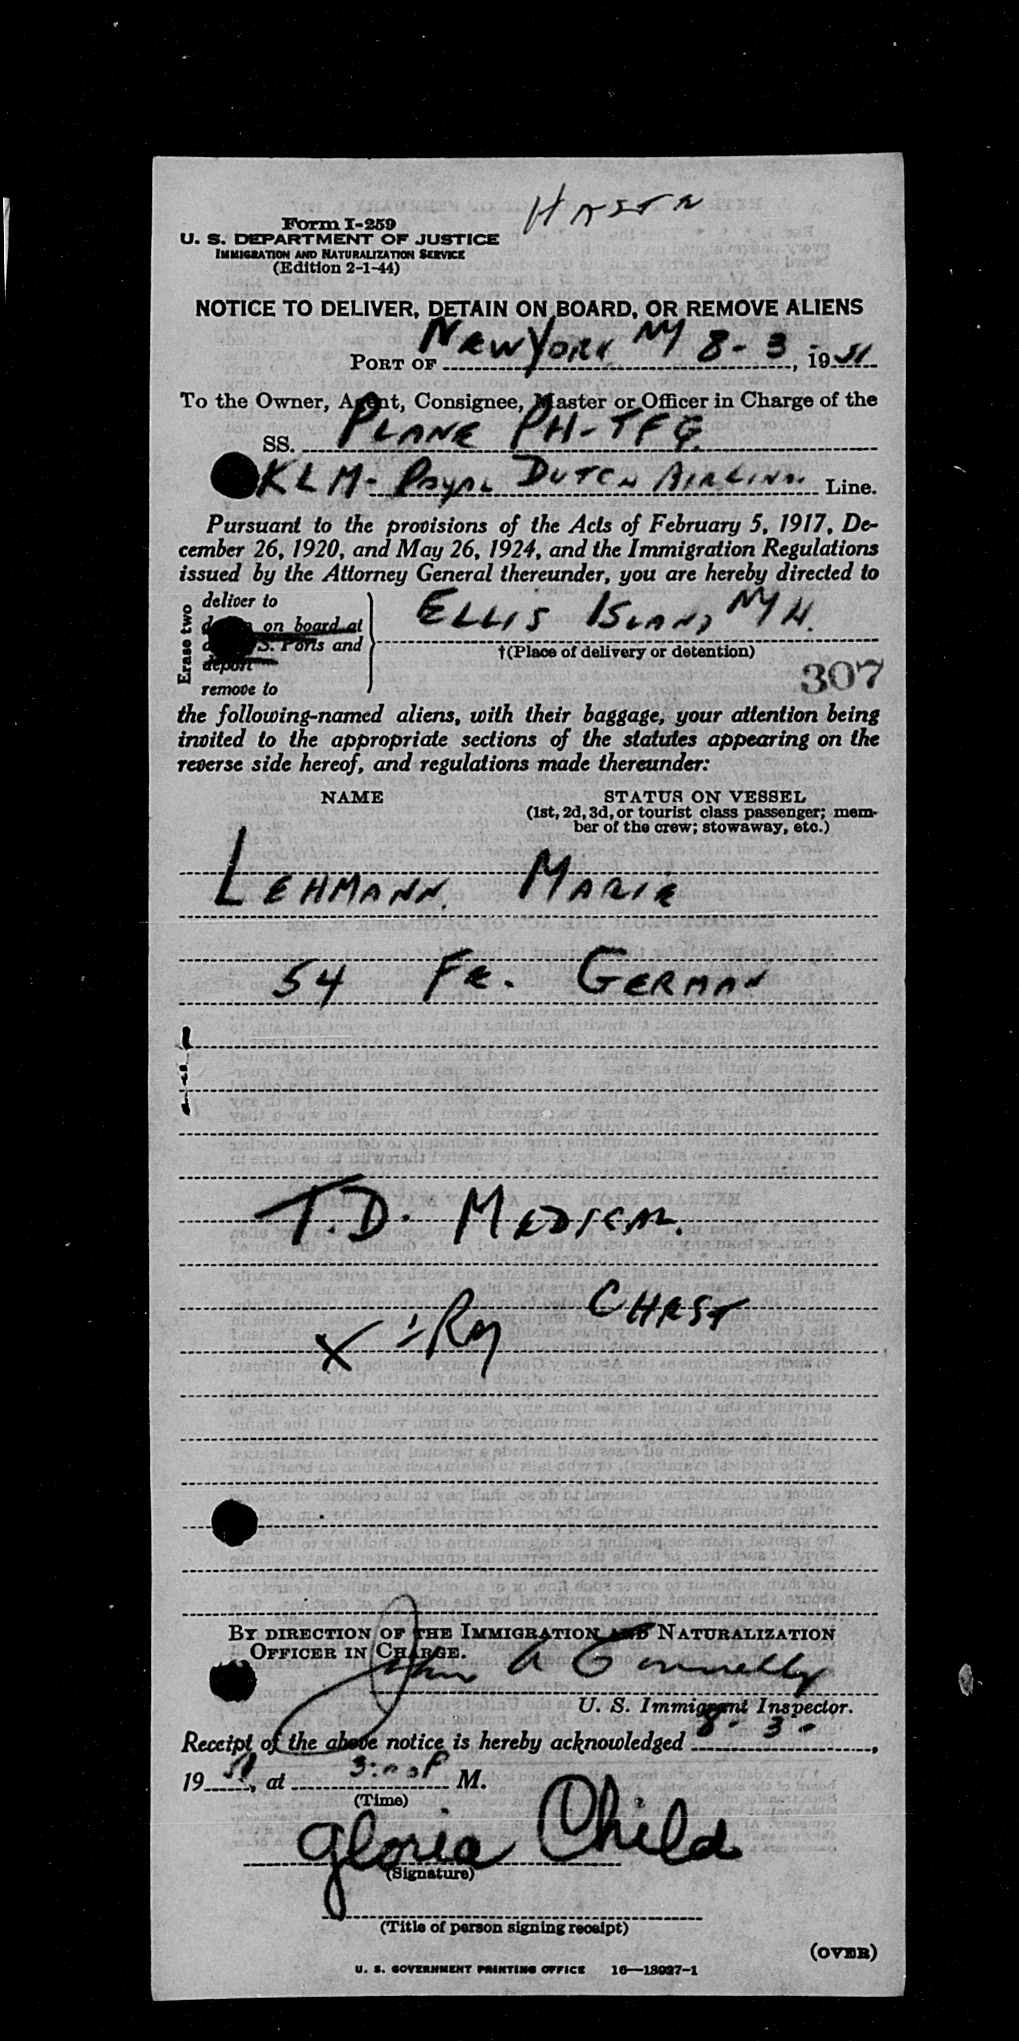 Form I-259
U. S. DEPARTMENT OF JUSTICE
IMMIGRATION AND NATURALIZATION SERVICE
(Edition 2-1-44)
NOTICE TO DELIVER, DETAIN ON BOARD, OR REMOVE ALIENS
PORT OF New York NY 8-3, 1951
To the Owner, Agent, Consignee, Master or Officer in Charge of the
SS. PLANE PH-TFG.
KLM- Royal DUTCH AIRLINES Line.
Pursuant to the provisions of the Acts of February 5, 1917, De-
cember 26, 1920, and May 26, 1924, and the Immigration Regulations
issued by the Attorney General thereunder, you are hereby directed to
Erase two
deliver to
on board at
S. Ports and
deport
remove to
ELLIS ISLAND NYH.
†(Place of delivery or detention)
307
the following-named aliens, with their baggage, your attention being
invited to the appropriate sections of the statutes appearing on the
reverse side hereof, and regulations made thereunder:
NAME STATUS ON VESSEL
(1st, 2d, 3d, or tourist class passenger; mem-
ber of the crew; stowaway, etc.)
LEHMANN. MARIE
54 Fe. GERMAN
T.D. MEDICAL.
X-Ray CHEST
BY DIRECTION OF THE IMMIGRATION AND NATURALIZATION
OFFICER IN CHARGE.
John A Connelly
U. S. Immigrant Inspector.
Receipt of the above notice is hereby acknowledged 8-3-,
1951, at 3:00P M.
(Time)
Gloria Child
(Signature)
(Title of person signing receipt)
(OVER)
U. S. GOVERNMENT PRINTING OFFICE 16—13927-1